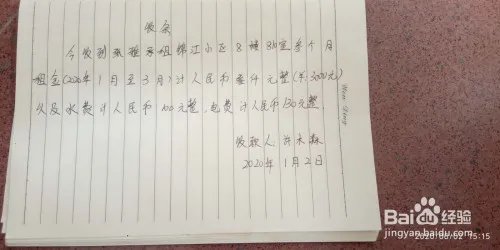 收条
今收到张雅承租锦江小区8楼810室叁个月
租金(2020年1月至3月)计人民币叁仟元整(¥:3000元)
以及水费计人民币100元整、电费计人民币130元整.
收款人:许木森
2020年1月2日
Baidu经验
jingyan.baidu.com
15:15